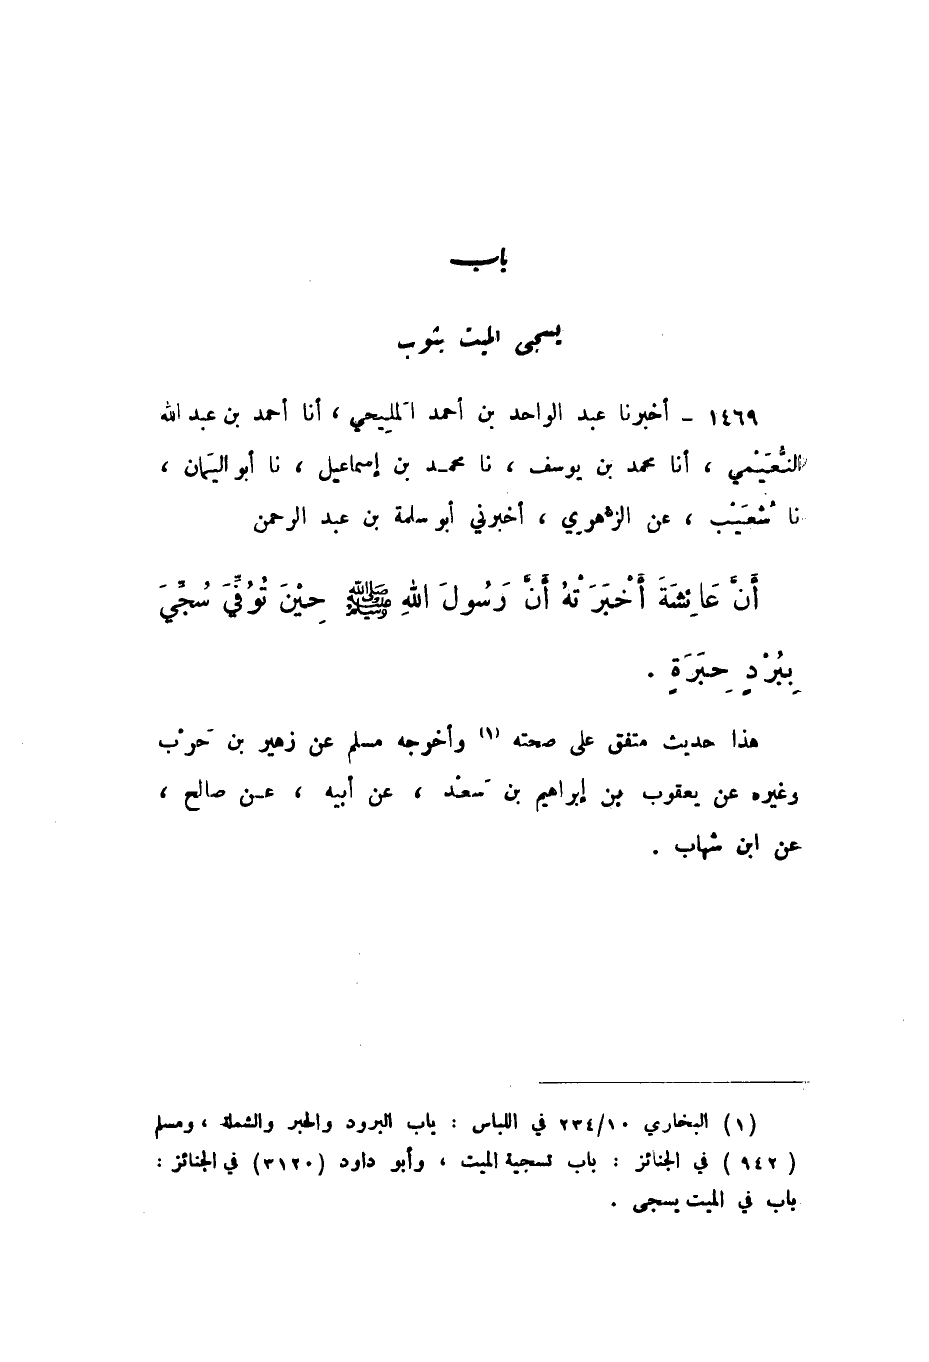 باب
يسجى الميت بثوب
١٤٦٩ - أخبرنا عبد الواحد بن أحمد المَلِيحي ، أنا أحمد بن عبد الله
النُّعَيْمي ، أنا محمد بن يوسف ، نا محمد بن إسماعيل ، نا أبو اليمان ،
نا شُعَيْب ، عن الزُّهري ، أخبرني أبو سلمة بن عبد الرحمن
أَنَّ عَائِشَةَ أَخْبَرَتْهُ أَنَّ رَسُولَ اللهِ ﷺ حِيْنَ تُوُفِّيَ سُجِّيَ
بِبُرْدٍ حِبَرَةٍ .
هذا حديث متفق على صحته (١) وأخرجه مسلم عن زهير بن حَرْب
وغيره عن يعقوب بن إبراهيم بن سَعْد ، عن أبيه ، عن صالح ،
عن ابن شهاب .
(١) البخاري ٢٣٤/١٠ في اللباس : باب البرود والحبر والشملة ، ومسلم
( ٩٤٢ ) في الجنائز : باب تسجية الميت ، وأبو داود (٣١٢٠) في الجنائز :
باب في الميت يسجى .